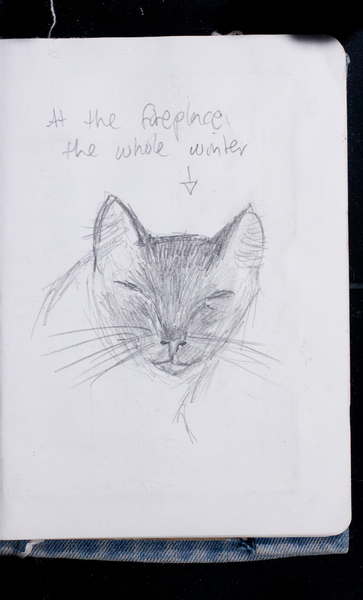 At the fireplace
the whole winter